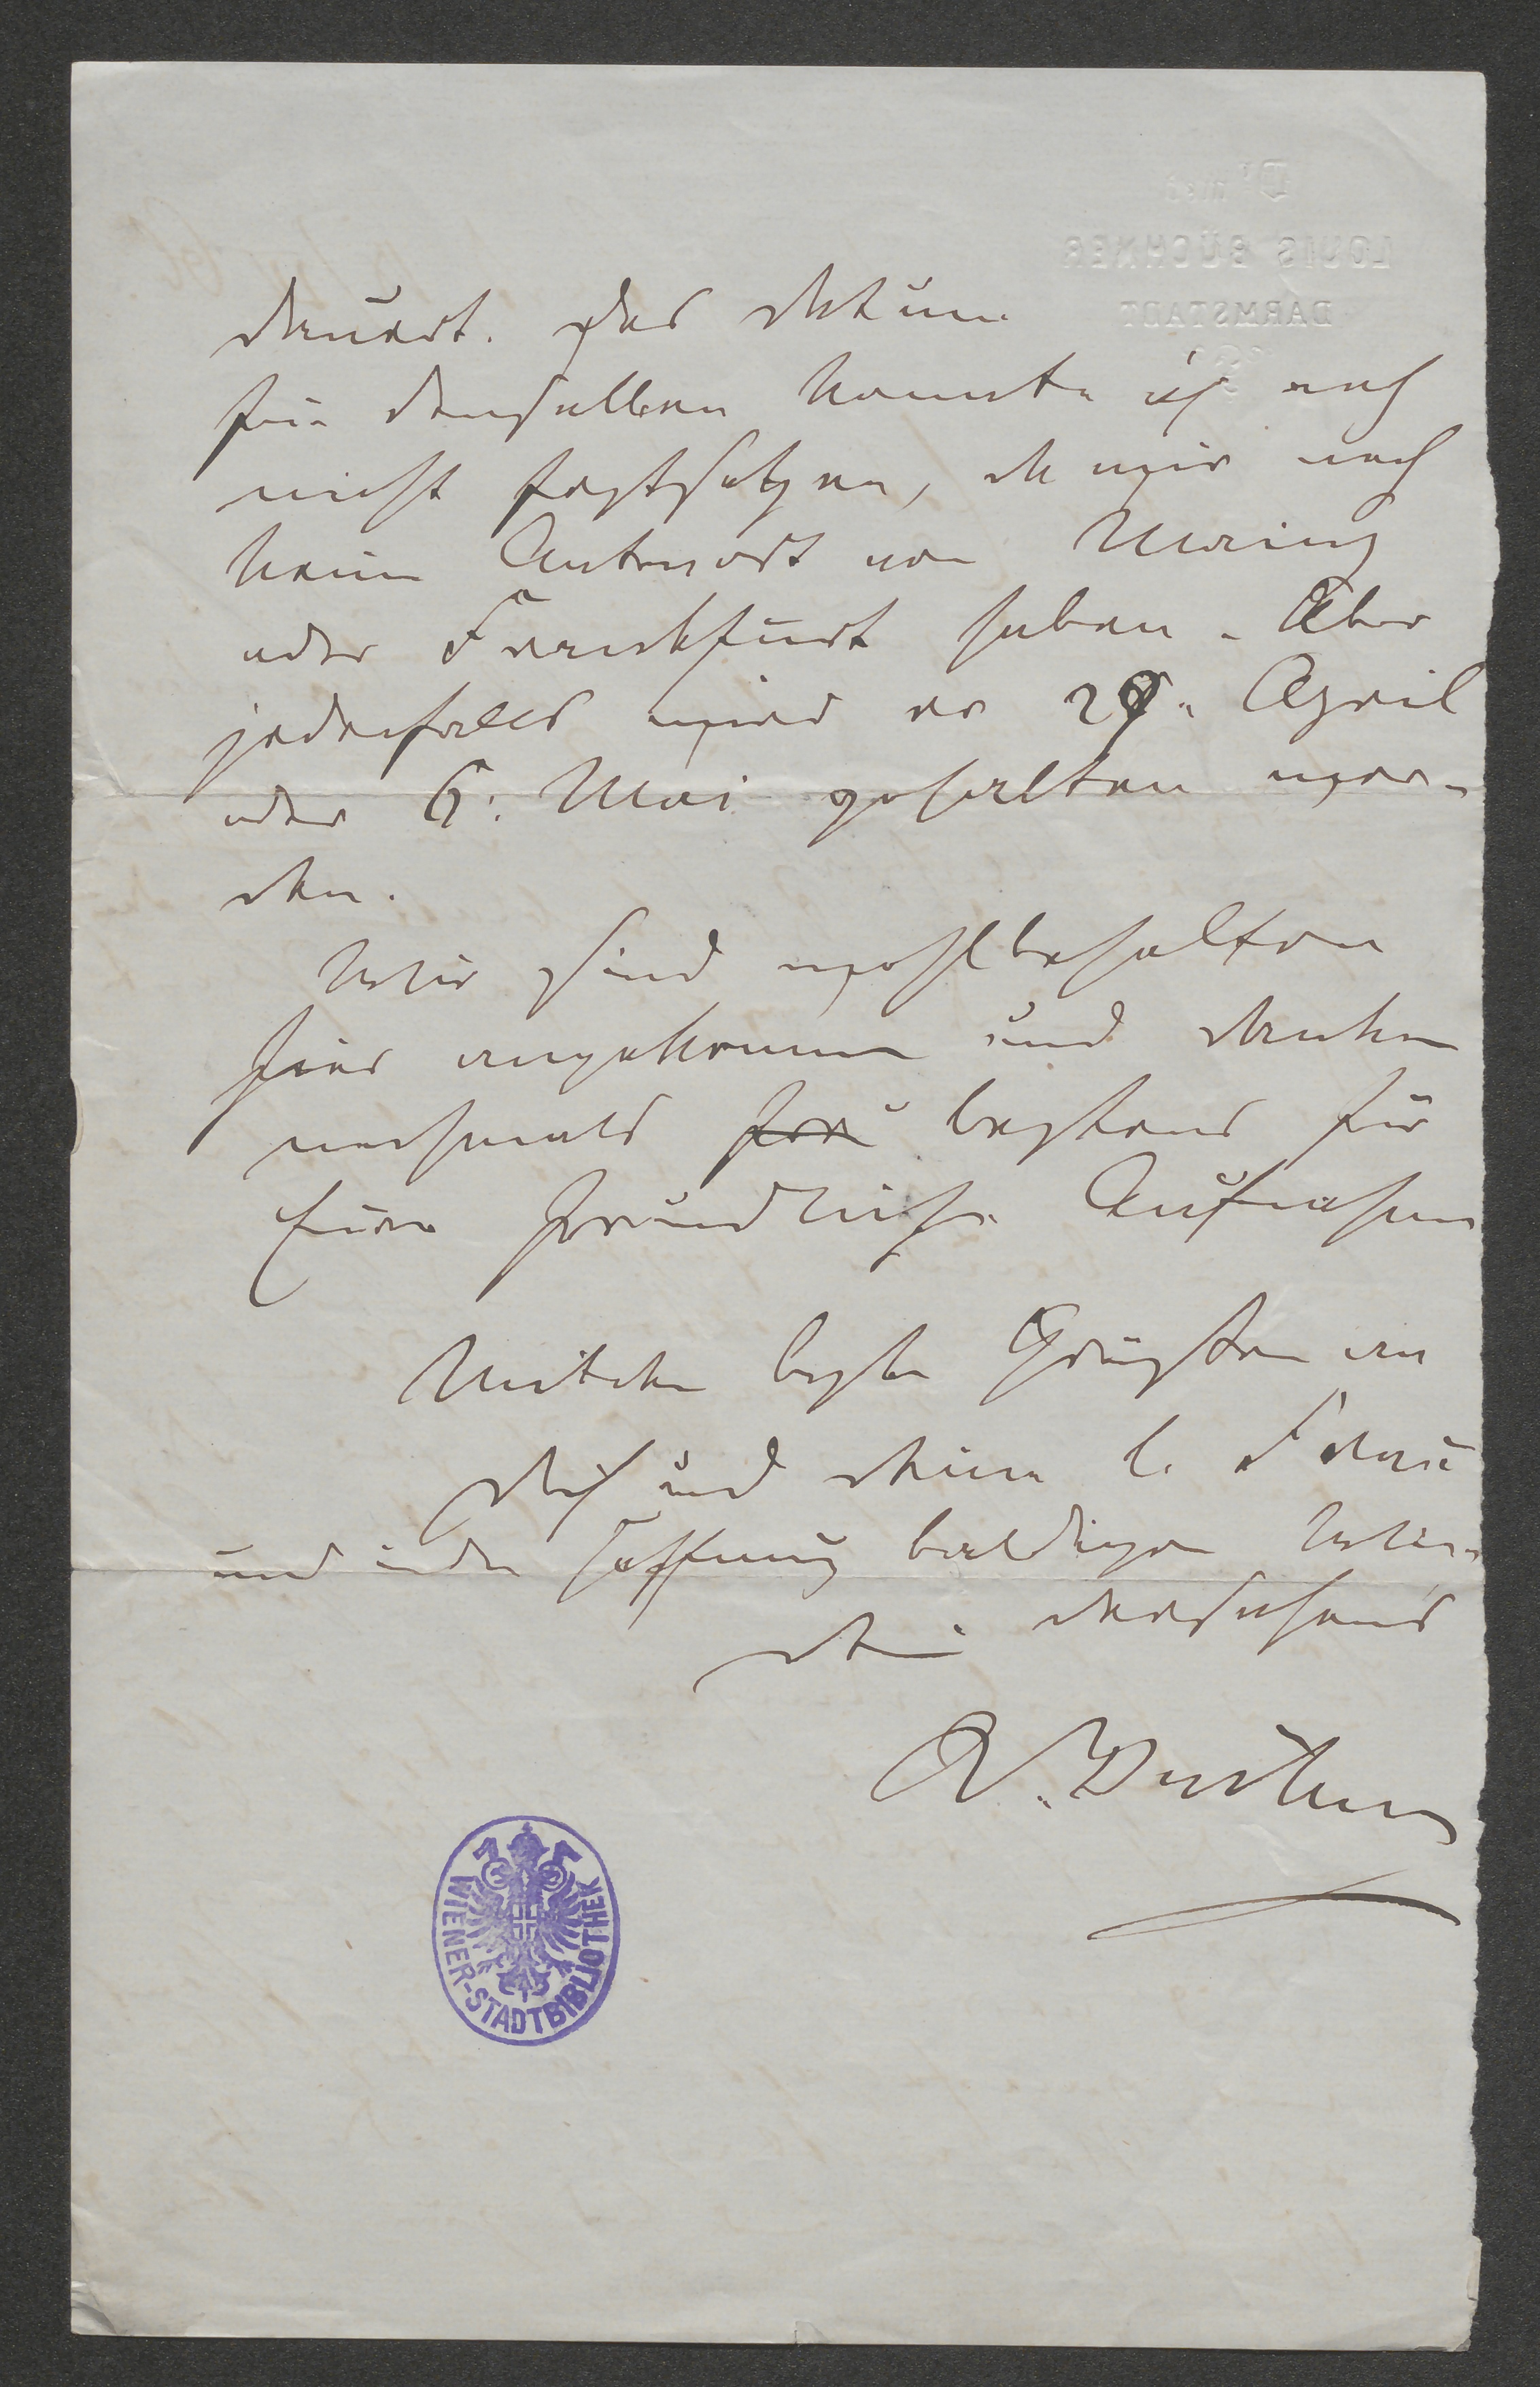 dauert. Das Datum
für denselben konnte ich noch
nicht festsetzen, da wir noch
keine Antwort von Mainz
oder Frankfurt haben. Aber
jedenfalls wird er 29. April
oder 6. Mai gehalten wer-
den.
Wir sind wohlbehalten
hier angekommen und danken
nochmals bestens für
Eure freundliche Aufnahme
Mit den besten Grüßen an
Dich und Deine l. Frau
und in der Hoffnung baldigen Wie-
dersehens
Dein
Büchner
Dr. med.
LOUIS BÜCHNER
DARMSTADT
WIENER-STADTBIBLIOTHEK